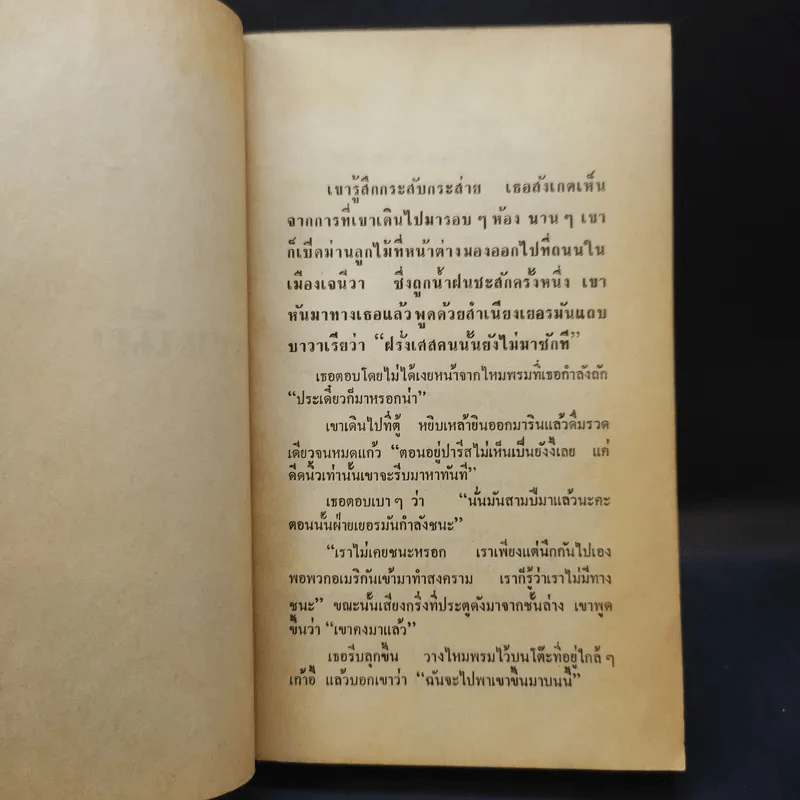 เขารู้สึกกระสับกระส่าย เธอสังเกตเห็น
จากการที่เขาเดินไปมารอบ ๆ ห้อง นาน ๆ เขา
ก็เปิดม่านลูกไม้ที่หน้าต่างมองออกไปที่ถนนใน
เมืองเจนีวา ซึ่งถูกน้ำฝนชะสักครั้งหนึ่ง เขา
หันมาทางเธอแล้วพูดด้วยสำเนียงเยอรมันแถบ
บาวาเรียว่า “ฝรั่งเศสคนนั้นยังไม่มาซักที”
เธอตอบโดยไม่ได้เงยหน้าจากไหมพรมที่เธอกำลังถัก
“ประเดี๋ยวก็มาหรอกน่า”
เขาเดินไปที่ตู้ หยิบเหล้ายินออกมารินแล้วดื่มรวด
เดียวจนหมดแก้ว “ตอนอยู่ปารีสไม่เห็นเป็นยังงี้เลย แค่
ดีดนิ้วเท่านั้นเขาจะรีบมาหาทันที”
เธอตอบเบา ๆ ว่า “นั่นมันสามปีมาแล้วนะคะ
ตอนนั้นฝ่ายเยอรมันกำลังชนะ”
“เราไม่เคยชนะหรอก เราเพียงแต่นึกกันไปเอง
พอพวกอเมริกันเข้ามาทำสงคราม เราก็รู้ว่าเราไม่มีทาง
ชนะ” ขณะนั้นเสียงกริ่งที่ประตูดังมาจากชั้นล่าง เขาพูด
ขึ้นว่า “เขาคงมาแล้ว”
เธอรีบลุกขึ้น วางไหมพรมไว้บนโต๊ะที่อยู่ใกล้ ๆ
เก้าอี้ แล้วบอกเขาว่า “ฉันจะไปพาเขาขึ้นมาบนนี้”